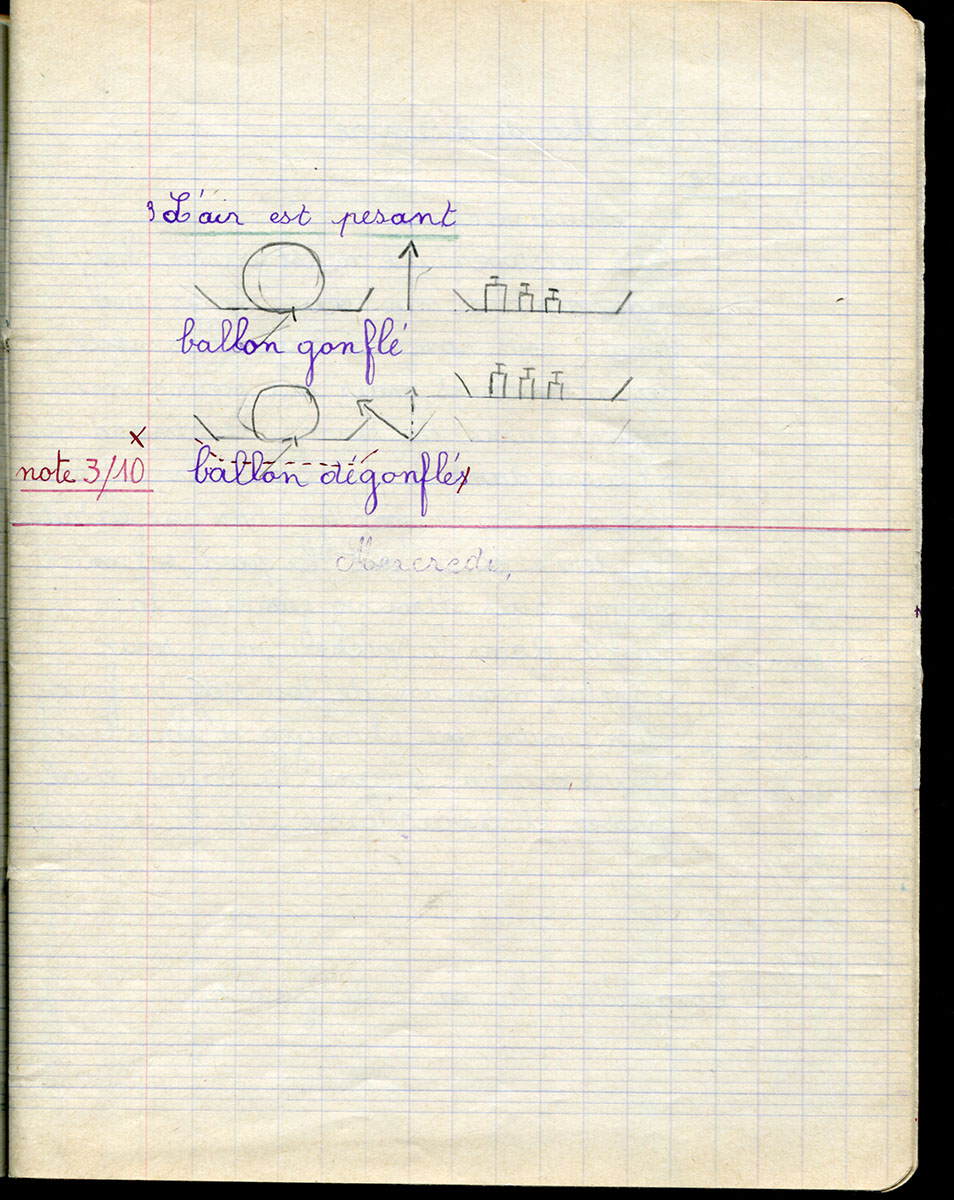 3 L'air est pesant
ballon gonflé
x
note 3/10 ballon dégonflé
Mercredi,